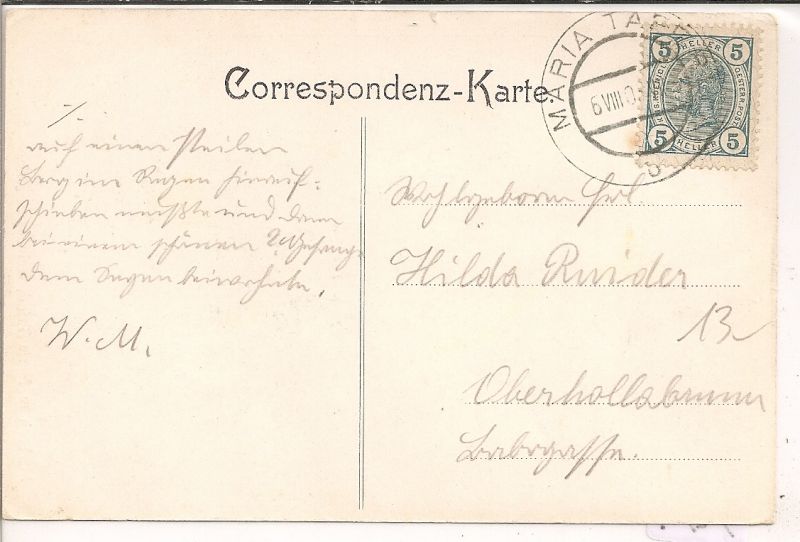 Correspondenz-Karte.
MARIA TA
6 VIII 0
b
5 HELLER 5
5 HELLER 5
./.
auf einen steilen
Berg im Regen hinauf-
schieben mußte und dann
bei einem schönen
dem Segen beiwohnte.
W. M.
Wohlgeborne Frl.
Hilda Ruider
13
Oberhollabrunn
Babogasse.